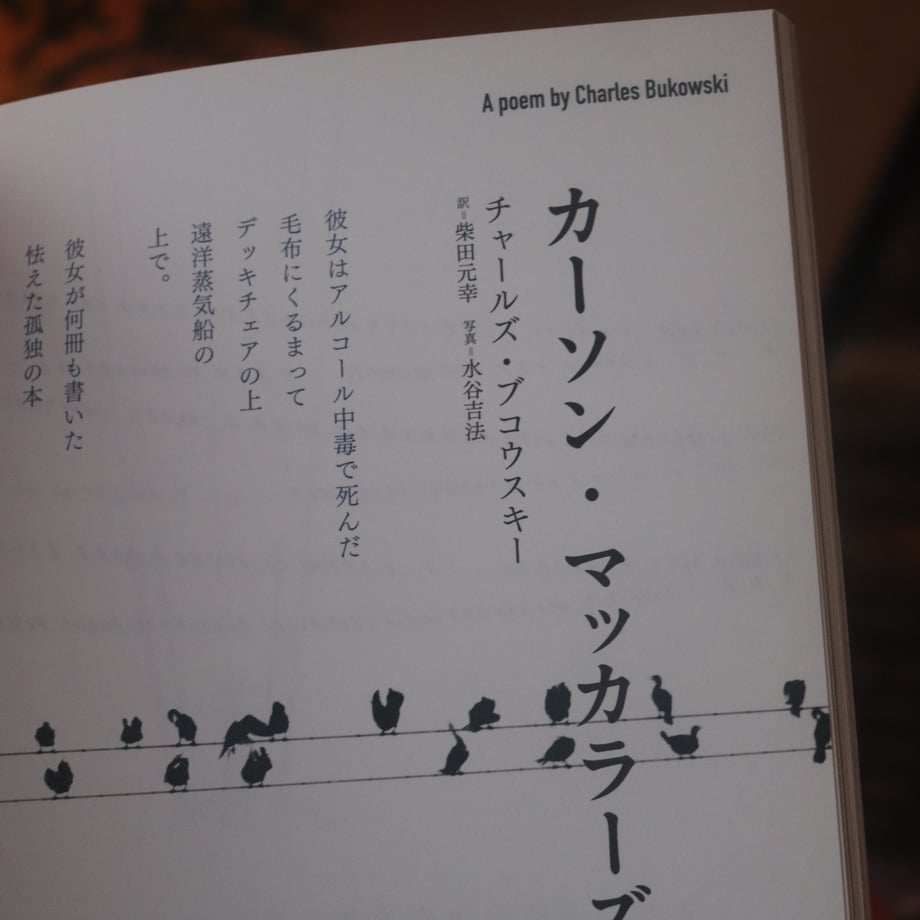 A poem by Charles Bukowski
カーソン・マッカラーズ
チャールズ・ブコウスキー
訳=柴田元幸 写真=水谷吉法
彼女はアルコール中毒で死んだ
毛布にくるまって
デッキチェアの上
遠洋蒸気船の
上で。
彼女が何冊も書いた
怯えた孤独の本